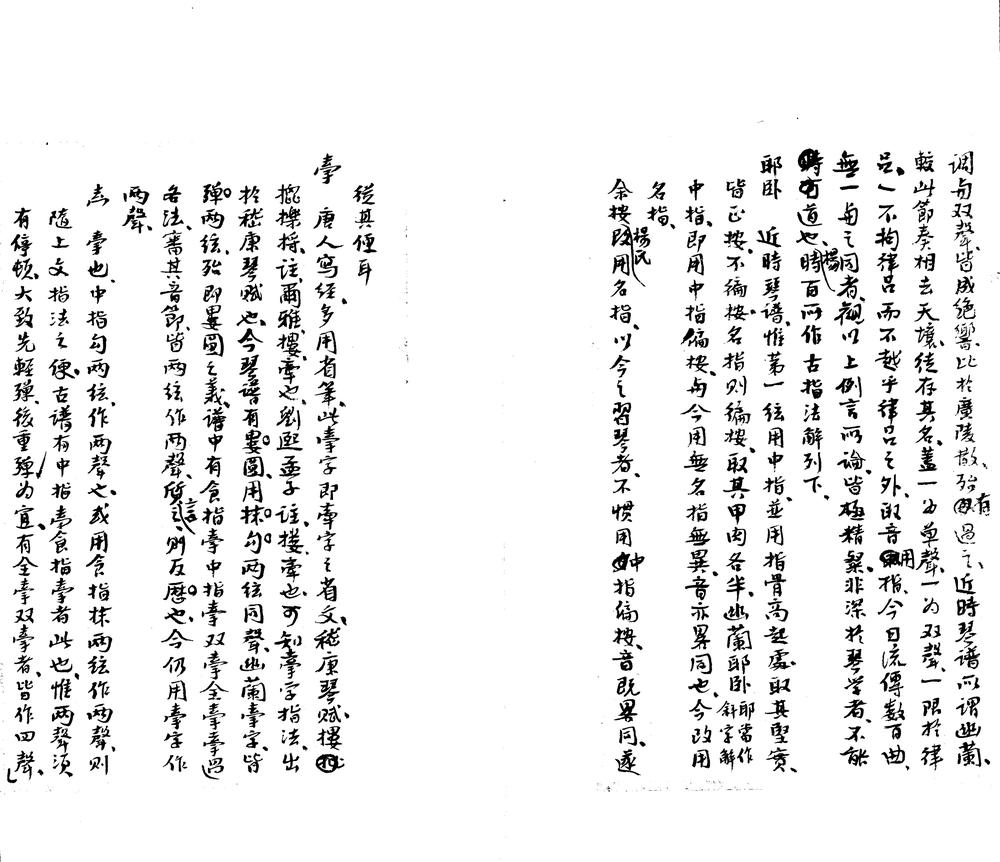 调与双聲、皆成绝響、比於廣陵散、殆有過之、近時琴谱所谓幽蘭、
較此節奏相去天壤、徒存其名、蓋一为单聲、一为双聲、一限於律
吕、一不拘律吕而不越乎律吕之外、取音用指、今日流傳数百曲、
無一与之同者、观以上例言所论、皆極精粲、非深於琴学者、不能
有道也、楊時百所作古指法解列下、
耶卧 近時琴谱、惟第一絃用中指、並用指骨高起處、取其坚實、
皆正按、不偏按、名指則偏按、取其甲肉各半、幽蘭耶卧耶當作斜字解
中指、即用中指偏按、与今用無名指無異、音亦畧同也、今改用
名指、
余按楊氏改用名指、以今之習琴者、不惯用中指偏按、音既畧同、遂
從其便耳
㧕 唐人寫经、多用省筆、此㧕字即牽字之省文、嵇康琴赋、摟
擽捋、註、爾雅、摟、牽也、劉熙孟子註、摟、牽也、可知㧕字指法、出
於嵇康琴赋也、今琴谱有婁圆、用抹勾两絃同聲、幽蘭㧕字、皆
弹两絃、殆即婁圆之義、谱中有食指㧕、中指㧕、双㧕、全㧕、㧕過
各法、審其音節、皆两絃作两聲、質言之、則反歷也、今仍用㧕字作
两聲、
㧕也、中指勾两絃、作两聲也、或用食指抹两絃作两聲、則
隨上文指法之便、古谱有中指㧕食指㧕者、此也、惟两聲须
有停頓、大致先輕弹、後重弹为宜、有全㧕双㧕者、皆作四聲、